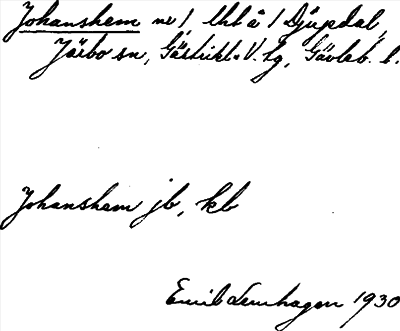 Johanshem nr 1, lht å 1 Djupdal,
Järbo sn, Gästrikl. V. tg, Gävleb. l.
Johanshem jb, kb
Emil Lenhagen 1930